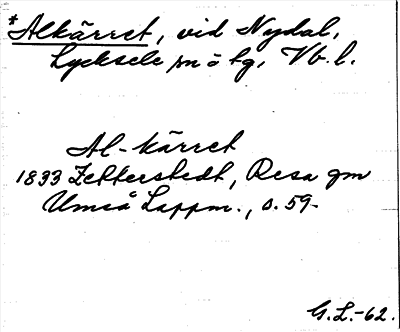 *Alkärret, vid Nydal,
Lycksele sn o tg, Vb. l.
Al-kärret
1833 Zetterstedt, Resa gm
Umeå Lappm., s. 59.
G. L.-62.